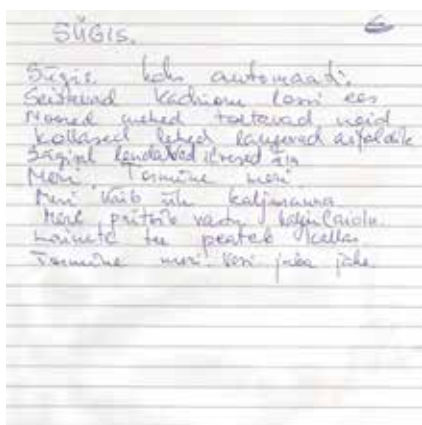 SÜGIS. 6
Sügis. kaks automaati.
Seisavad Kadrioru lossi ees
Noored mehed toetavad neid
Kollased lehed langevad asfaldile
Sügisel lendavad ära
Meri. Tormine meri.
Meri käib üle kaljuranna
Meri pritsib vastu
Lainete peatab kallas
Tormine meri. Vesi juba jahe.